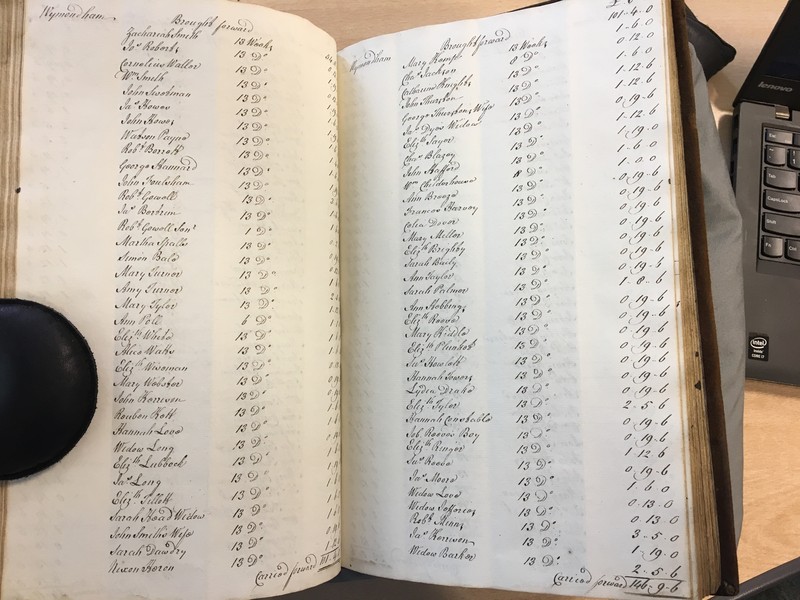 Wymondham Brought forward
Zachariah Smith 13 Weeks
Jas Roberts 13 Do
Cornelius Waller 13 Do
Wm Smith 13 Do
John 13 Do
Jas Howes 13 Do
John Howes 13 Do
Watson Payne 13 Do
Robt Borrett 13 Do
George Stannard 13 Do
John Foulsham 13 Do
Robt Gowell 13 Do
Jas Bertrum 13 Do
Robt Gowell Senr 1 Do
Martha Spalls 13 Do
Simon Bald 13 Do
Mary Turner 13 Do
Amy Turner 13 Do
Mary Tyler 13 Do
Ann Poll 6 Do
Elizth White 13 Do
Alice Watts 13 Do
Elizth Wiseman 13 Do
Mary Webster 13 Do
John Kerrison 13 Do
Reuben Kett 13 Do
Hannah Love 13 Do
Widow Long 13 Do
Elizth Lubbock 13 Do
Jas Long 13 Do
Elizth Tillett 13 Do
Sarah Head Widow 13 Do
John Smith's Wife 13 Do
Sarah Dawdry 13 Do
Nixon Heron 13 Do
Carried forward
Wymondham Brought forward 101-4-0
Mary Kemp 13 Weeks 1-6-0
Chas Jackson 8 Do 0-12-0
Catharine Knights 13 Do 1-6-0
John Thurston 13 Do 1-12-6
George Thurstons Wife 13 Do 1-12-6
Jas Dyes Widow 13 Do 0-19-6
Elizth Sayer 13 Do 1-12-6
Chas Blazey 13 Do 1-19-0
John Stafford 13 Do 1-6-0
Wm 1-0-0
Ann Breeze 13 Do 0-19-6
Frances Harvey 13 Do 0-19-6
Celia Dover 13 Do 0-19-6
Mary Miller 13 Do 0-19-6
Elizth Brighty 13 Do 0-19-6
Sarah Baily 13 Do 0-19-6
Ann Taylor 13 Do
Sarah Palmer 13 Do
Ann Stebbings 13 Do 0-19-6
Elizth Reeve 13 Do 0-19-6
Mary Kiddle 13 Do 0-19-6
Elizth 13 Do 0-19-6
Susn Howlett 13 Do 0-19-6
Hannah Towers 13 Do 0-19-6
Lydea Drake 13 Do 0-19-6
Elizth Tyler 13 Do 2-5-6
Hannah Constable 13 Do 0-19-6
Job Reeves Boy 13 Do 0-19-6
Elizth Ringer 13 Do 1-12-6
Susn Reeve 13 Do 0-19-6
Jas Moore 13 Do 1-6-0
Widow Love 13 Do 0-13-0
Widow 13 Do 0-13-0
Robt Minns 13 Do 3-5-0
Jas Kerrison 13 Do 1-19-0
Widow Barker 13 Do 2-5-6
Carried forward 146-9-6
lenovo
Tab
CapsLock
Shift
Fn
Ctrl
intel
inside
CORE i7